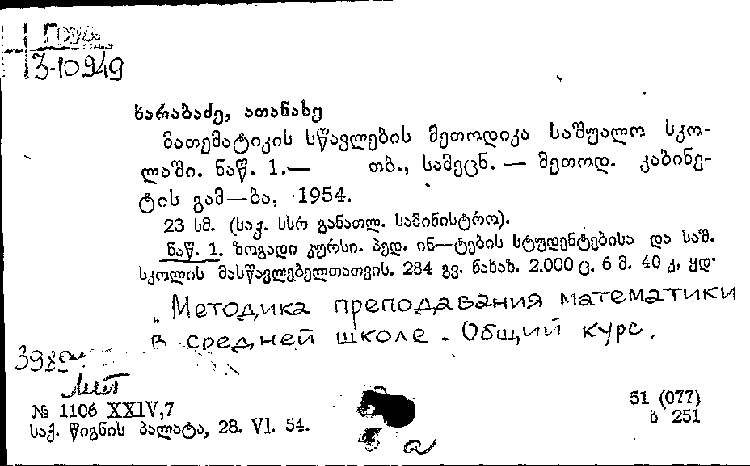 З-10949
ხარაბაძე, ათანასე
მათემატიკის სწავლების მეთოდიკა საშუალო სკო-
ლაში. ნაწ. 1.— თბ., სამეცნ. — მეთოდ. კაბინე-
ტის გამ—ბა, 1954.
23 სმ. (საქ. სსრ განათლ. სამინისტრო).
ნაწ. 1. ზოგადი კურსი. პედ. ინ—ტების სტუდენტებისა და საშ.
სკოლის მასწავლებელთათვის. 284 გვ. ნახაზ. 2.000 ც. 6 მ. 40 კ. ყდ.
Методика преподавания математики
в средней школе. Общий курс.
№ 1106 XXIV,7
51 (077)
საქ. წიგნის პალატა, 28. VI. 54.
251